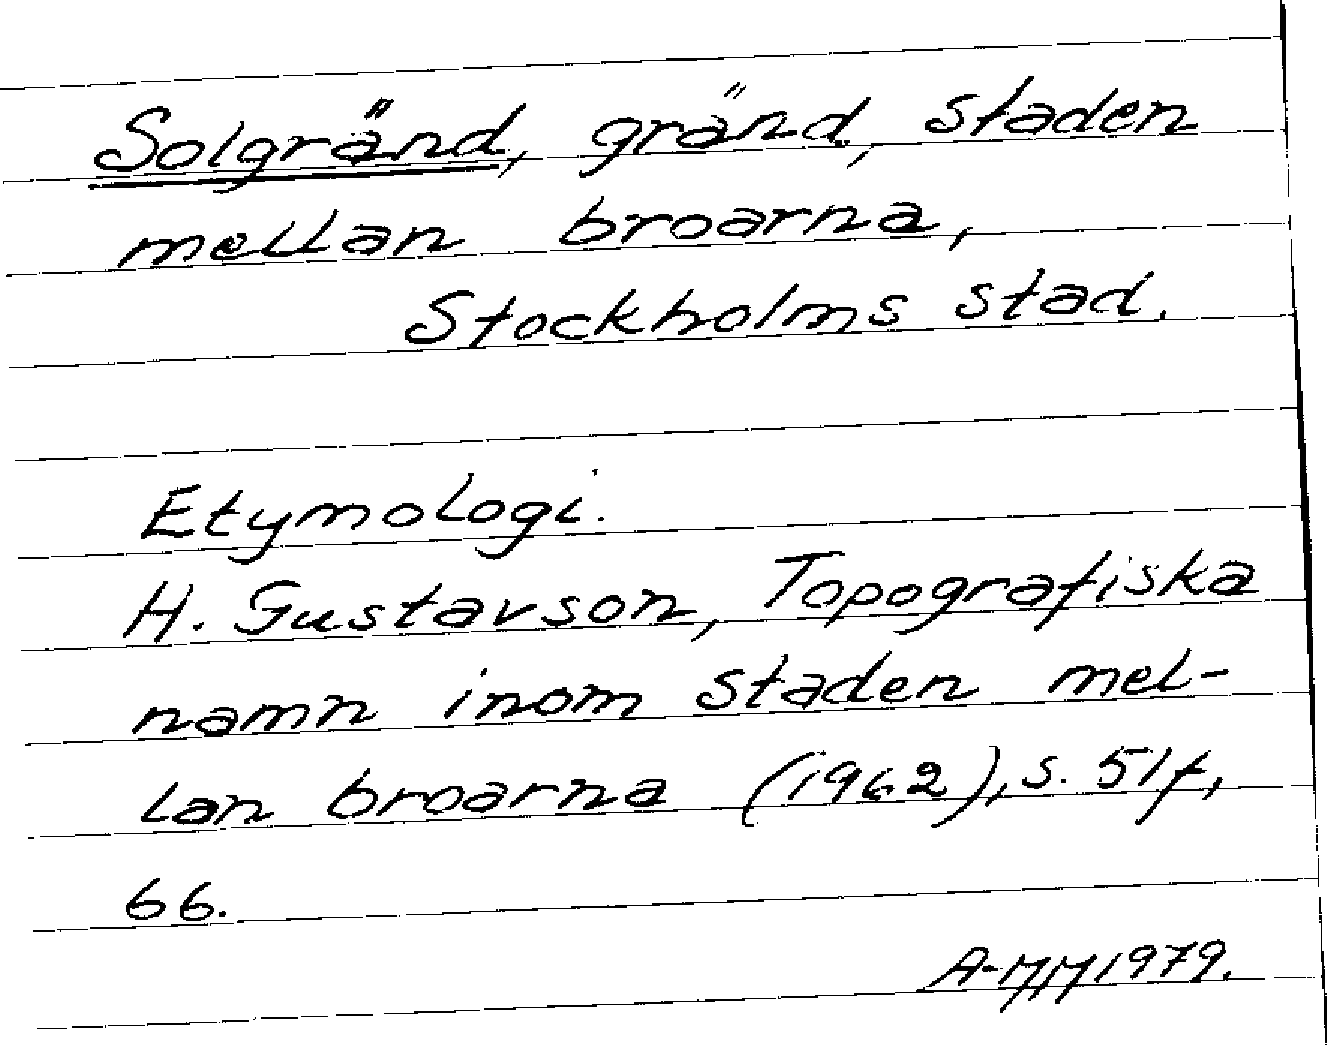 Solgränd, gränd, staden
mellan broarna,
Stockholms stad.
Etymologi.
H. Gustavson, Topografiska
namn inom staden mel-
lan broarna (1962), s. 51f,
66.
A-MM 1979.